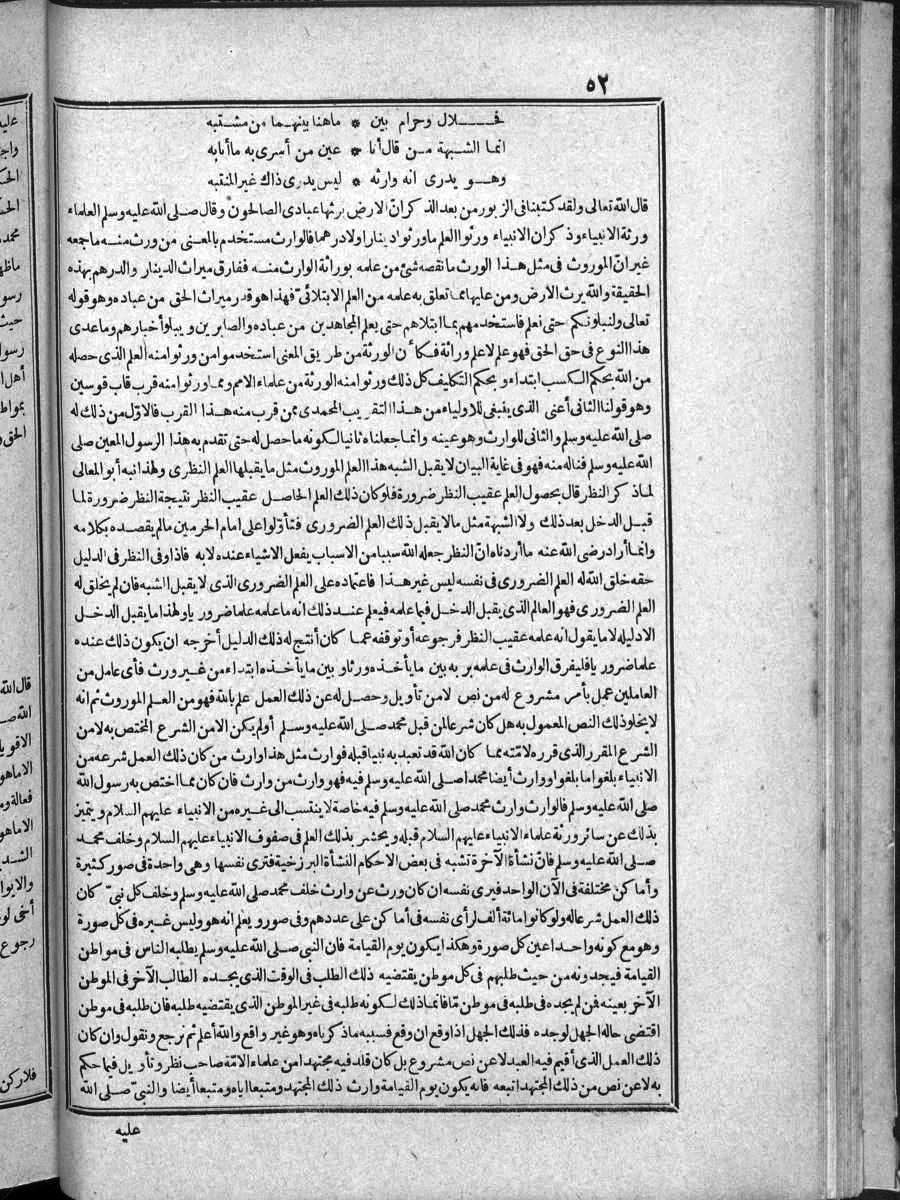 ٥٢
فحلال وحرام بين * ماهنا بينهما من مشتبه
انما الشبهة من قال أنا * عين من أسرى به ما أنابه
وهو يدرى انه وارثه * ليس يدرى ذاك غير المنتبه
قال الله تعالى ولقد كتبنا فى الزبور من بعد الذكر ان الارض يرثها عبادى الصالحون وقال صلى الله عليه وسلم العلماء
ورثة الانبياء وذكر ان الانبياء ورثوا العلم ما ورثوا دينارا ولا درهما فالوارث مستخدم بالمعنى من ورث منه ما جمعه
غير انّ الموروث فى مثل هذا الورث ما نقصه شئ من علمه بوراثة الوارث منه ففارق ميراث الدينار والدرهم بهذه
الحقيقة والله يرث الارض ومن عليها مما تعلق به علمه من العلم الابتلائىّ فهذا هو قدر ميراث الحق من عباده وهو قوله
تعالى ولنبلونكم حتى نعلم فاستخدمهم بما ابتلاهم حتى يعلم المجاهدين من عباده والصابرين ويبلو أخبارهم وما عدى
هذا النوع فى حق الحق فهو علم لا علم وراثة فكأن الورثة من طريق المعنى استخدموا من ورثوا منه العلم الذى حصله
من الله بحكم الكسب ابتداء وبحكم التكليف كل ذلك ورثوا منه الورثة من علماء الامم ومما ورثوا منه قرب قاب قوسين
وهو قولنا الثانى أعنى الذى ينبغى للاولياء من هذا التقريب المحمدى ممن قرب منه هذا القرب فالاوّل من ذلك له
صلى الله عليه وسلم والثانى للوارث وهو عينه وانما جعلناه ثانيا لكونه ما حصل له حتى تقدم به هذا الرسول المعين صلى
الله عليه وسلم فناله منه فهو فى غاية البيان لا يقبل الشبه هذا العلم الموروث مثل ما يقبلها العلم النظرى ولهذا نبه أبو المعالى
لما ذكر النظر قال بحصول العلم عقيب النظر ضرورة فلو كان ذلك العلم الحاصل عقيب النظر نتيجة النظر ضرورة لما
قبل الدخل بعد ذلك ولا الشبهة مثل ما لا يقبل ذلك العلم الضرورى فتأوّلوا على امام الحرمين ما لم يقصده بكلامه
وانما أراد رضى الله عنه ما أردناه انّ النظر جعله الله سببا من الاسباب يفعل الاشياء عنده لا به فاذا وفى النظر فى الدليل
حقه خلق الله له العلم الضرورى فى نفسه ليس غير هذا فاعتماده على العلم الضرورى الذى لا يقبل الشبه فان لم يخلق له
العلم الضرورى فهو العالم الذى يقبل الدخل فيما علمه فيعلم عند ذلك انه ما علمه علما ضروريا ولهذا ما يقبل الدخل
الا دليله لا ما يقول انه علمه عقيب النظر فرجوعه أو توقفه عما كان أنتج له ذلك الدليل أخرجه ان يكون ذلك عنده
علما ضروريا فليفرق الوارث فى علمه بربه بين ما يأخذه ورثا وبين ما يأخذه ابتداء من غير ورث فأى عامل من
العاملين عمل بأمر مشروع له من نص لا من تأويل وحصل له عن ذلك العمل علم بالله فهو من العلم الموروث ثم انه
لا يخلو ذلك النص المعمول به هل كان شرعا لمن قبل محمد صلى الله عليه وسلم أو لم يكن الا من الشرع المختص به لا من
الشرع المقرر الذى قرره لامّته مما كان الله قد تعبد به نبيا قبله فوارث مثل هذا وارث من كان ذلك العمل شرعه من
الانبياء بلغوا ما بلغوا ووارث أيضا محمدا صلى الله عليه وسلم فيه فهو وارث من وارث فان كان مما اختص به رسول الله
صلى الله عليه وسلم فالوارث وارث محمد صلى الله عليه وسلم فيه خاصة لا ينتسب الى غيره من الانبياء عليهم السلام ويتميز
بذلك عن سائر ورثة علماء الانبياء عليهم السلام قبله ويحشر بذلك العلم فى صفوف الانبياء عليهم السلام وخلف محمد
صلى الله عليه وسلم فانّ نشأة الآخرة تشبه فى بعض الاحكام النشأة البرزخية فترى نفسها وهى واحدة فى صور كثيرة
وأماكن مختلفة فى الآن الواحد فيرى نفسه ان كان ورث عن وارث خلف محمد صلى الله عليه وسلم وخلف كل نبىّ كان
ذلك العمل شرعا له ولو كانوا مائة ألف لرأى نفسه فى أماكن على عددهم وفى صور ويعلم انه هو وليس غيره فى كل صورة
وهو مع كونه واحدا عين كل صورة وهكذا يكون يوم القيامة فان النبى صلى الله عليه وسلم يطلبه الناس فى مواطن
القيامة فيجدونه من حيث طلبهم فى كل موطن يقتضيه ذلك الطلب فى الوقت الذى يجده الطالب الآخر فى الموطن
الآخر بعينه فمن لم يجده فى طلبه فى موطن مّا فانما ذلك لكونه طلبه فى غير الموطن الذى يقتضيه طلبه فان طلبه فى موطن
اقتضى حاله الجهل لوجده فذلك الجهل اذا وقع ان وقع فسببه ما ذكرناه وهو غير واقع والله أعلم ثم نرجع ونقول وان كان
ذلك العمل الذى أقيم فيه العبد لا عن نص مشروع بل كان قلد فيه مجتهدا من علماء الامّة صاحب نظر وتأويل فيما حكم
به لا عن نص من ذلك المجتهد اتبعه فانه يكون يوم القيامة وارث ذلك المجتهد ومتبعا اياه ومتبعا أيضا والنبىّ صلى الله
عليه